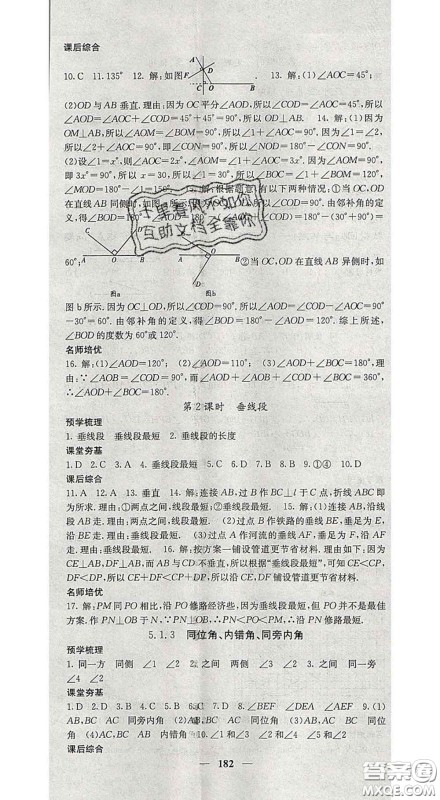 课后综合
10. C 11. 135° 12. 解:如图 13. 解:(1)∠AOC=45°;
(2)OD与AB垂直.理由:因为OC平分∠AOD,所以∠COD=∠AOC=45°,所以
∠AOD=∠AOC+∠COD=45°+45°=90°,所以OD⊥AB. 14. 解:(1)因为
OM⊥AB,所以∠AOM=∠BOM=90°,所以∠1+∠AOC=90°.因为∠1=∠2,
所以∠2+∠AOC=90°,即∠NOD=180°-∠CON=90°.
(2)设∠1=x°,则∠AOC=2x°,
即3x°=90°,所以x°=30°,所以∠1=30°,∠AOC=60°,所以∠BOD=60°,
∠MOD=180°-∠1=150°. 解:根据题意,有以下两种情况:①当OC,OD
在直线AB同侧时,如图
60°; ②当OC,OD在直线AB异侧时,如
图a 图b
图b所示.因为OC⊥OD,所以∠COD=90°,所以∠AOD=∠COD-∠AOC=90°
-30°=60°.由邻补角的定义,得∠BOD=180°-∠AOD=120°.综上所述,
∠BOD的度数为60°或120°.
名师培优
16. 解:(1)∠AOD=120°; (2)∠AOD=110°; (3)∠AOD+∠BOC=180°,理
由:∵∠AOB=∠COD=90°,而∠AOD+∠AOB+∠BOC+∠COD=360°,
∴∠AOD+∠BOC=180°.
第2课时 垂线段
预学梳理
1. 垂线段 垂线段最短 2. 垂线段的长度
课堂夯基
1. D 2. C 3. A 4. 垂线段最短 5. C 6. D 7. D 8. B 9. ①④ 10. D
课后综合
11. A 12. A 13. 垂直 14. 解:连接AB,过B作BC⊥l于C点,折线ABC即
为所求.理由:①两点之间,线段最短;②垂线段最短. 15. 解:(1)连接AB,沿线
段AB走.理由:两点之间,线段最短. (2)过点B作铁路的垂线BE,垂足为E,
沿BE走.理由:垂线段最短. (3)过点A作河流的垂线AF,垂足为F,沿AF
走.理由:垂线段最短. 16. 解:按方案一铺设管道更节省材料.理由如下:因为
CE⊥AB,DF⊥AB,而AB与CD不垂直,所以根据“垂线段最短”,可知CE<CP,
DF<DP,所以CE+DF<CP+DP,所以沿CE,DF铺设管道更节省材料.
名师培优
17. 解:PM同PO相比,沿PO修路经济些,因为垂线段最短,但PO不是最佳方
案.作PN⊥OB于N.∵PN⊥OB,∴PN<PO<PM,∴沿PN修路最经济.
5.1.3 同位角、内错角、同旁内角
预学梳理
1. 同一方 同侧 ∠1 ∠2 2. 之间 两侧 ∠3 ∠2 3. 之间 同一旁
∠4 ∠2
课堂夯基
1. D 2. A 3. B 4. C 5. D 6. B 7. B 8. ∠BDE ∠DEA ∠ADE 9. (1)
AB,BC AC 同旁内角 (2)AB,AC BC 同位角 (3)AB,BC AC 同旁
内角 (4)AC,BC AB 内错角 10. ∠1和∠4 ∠2和∠5 ∠2和∠4
课后综合
182
计算看图不如你
互助文档全靠你
答案圈
MXQE.COM